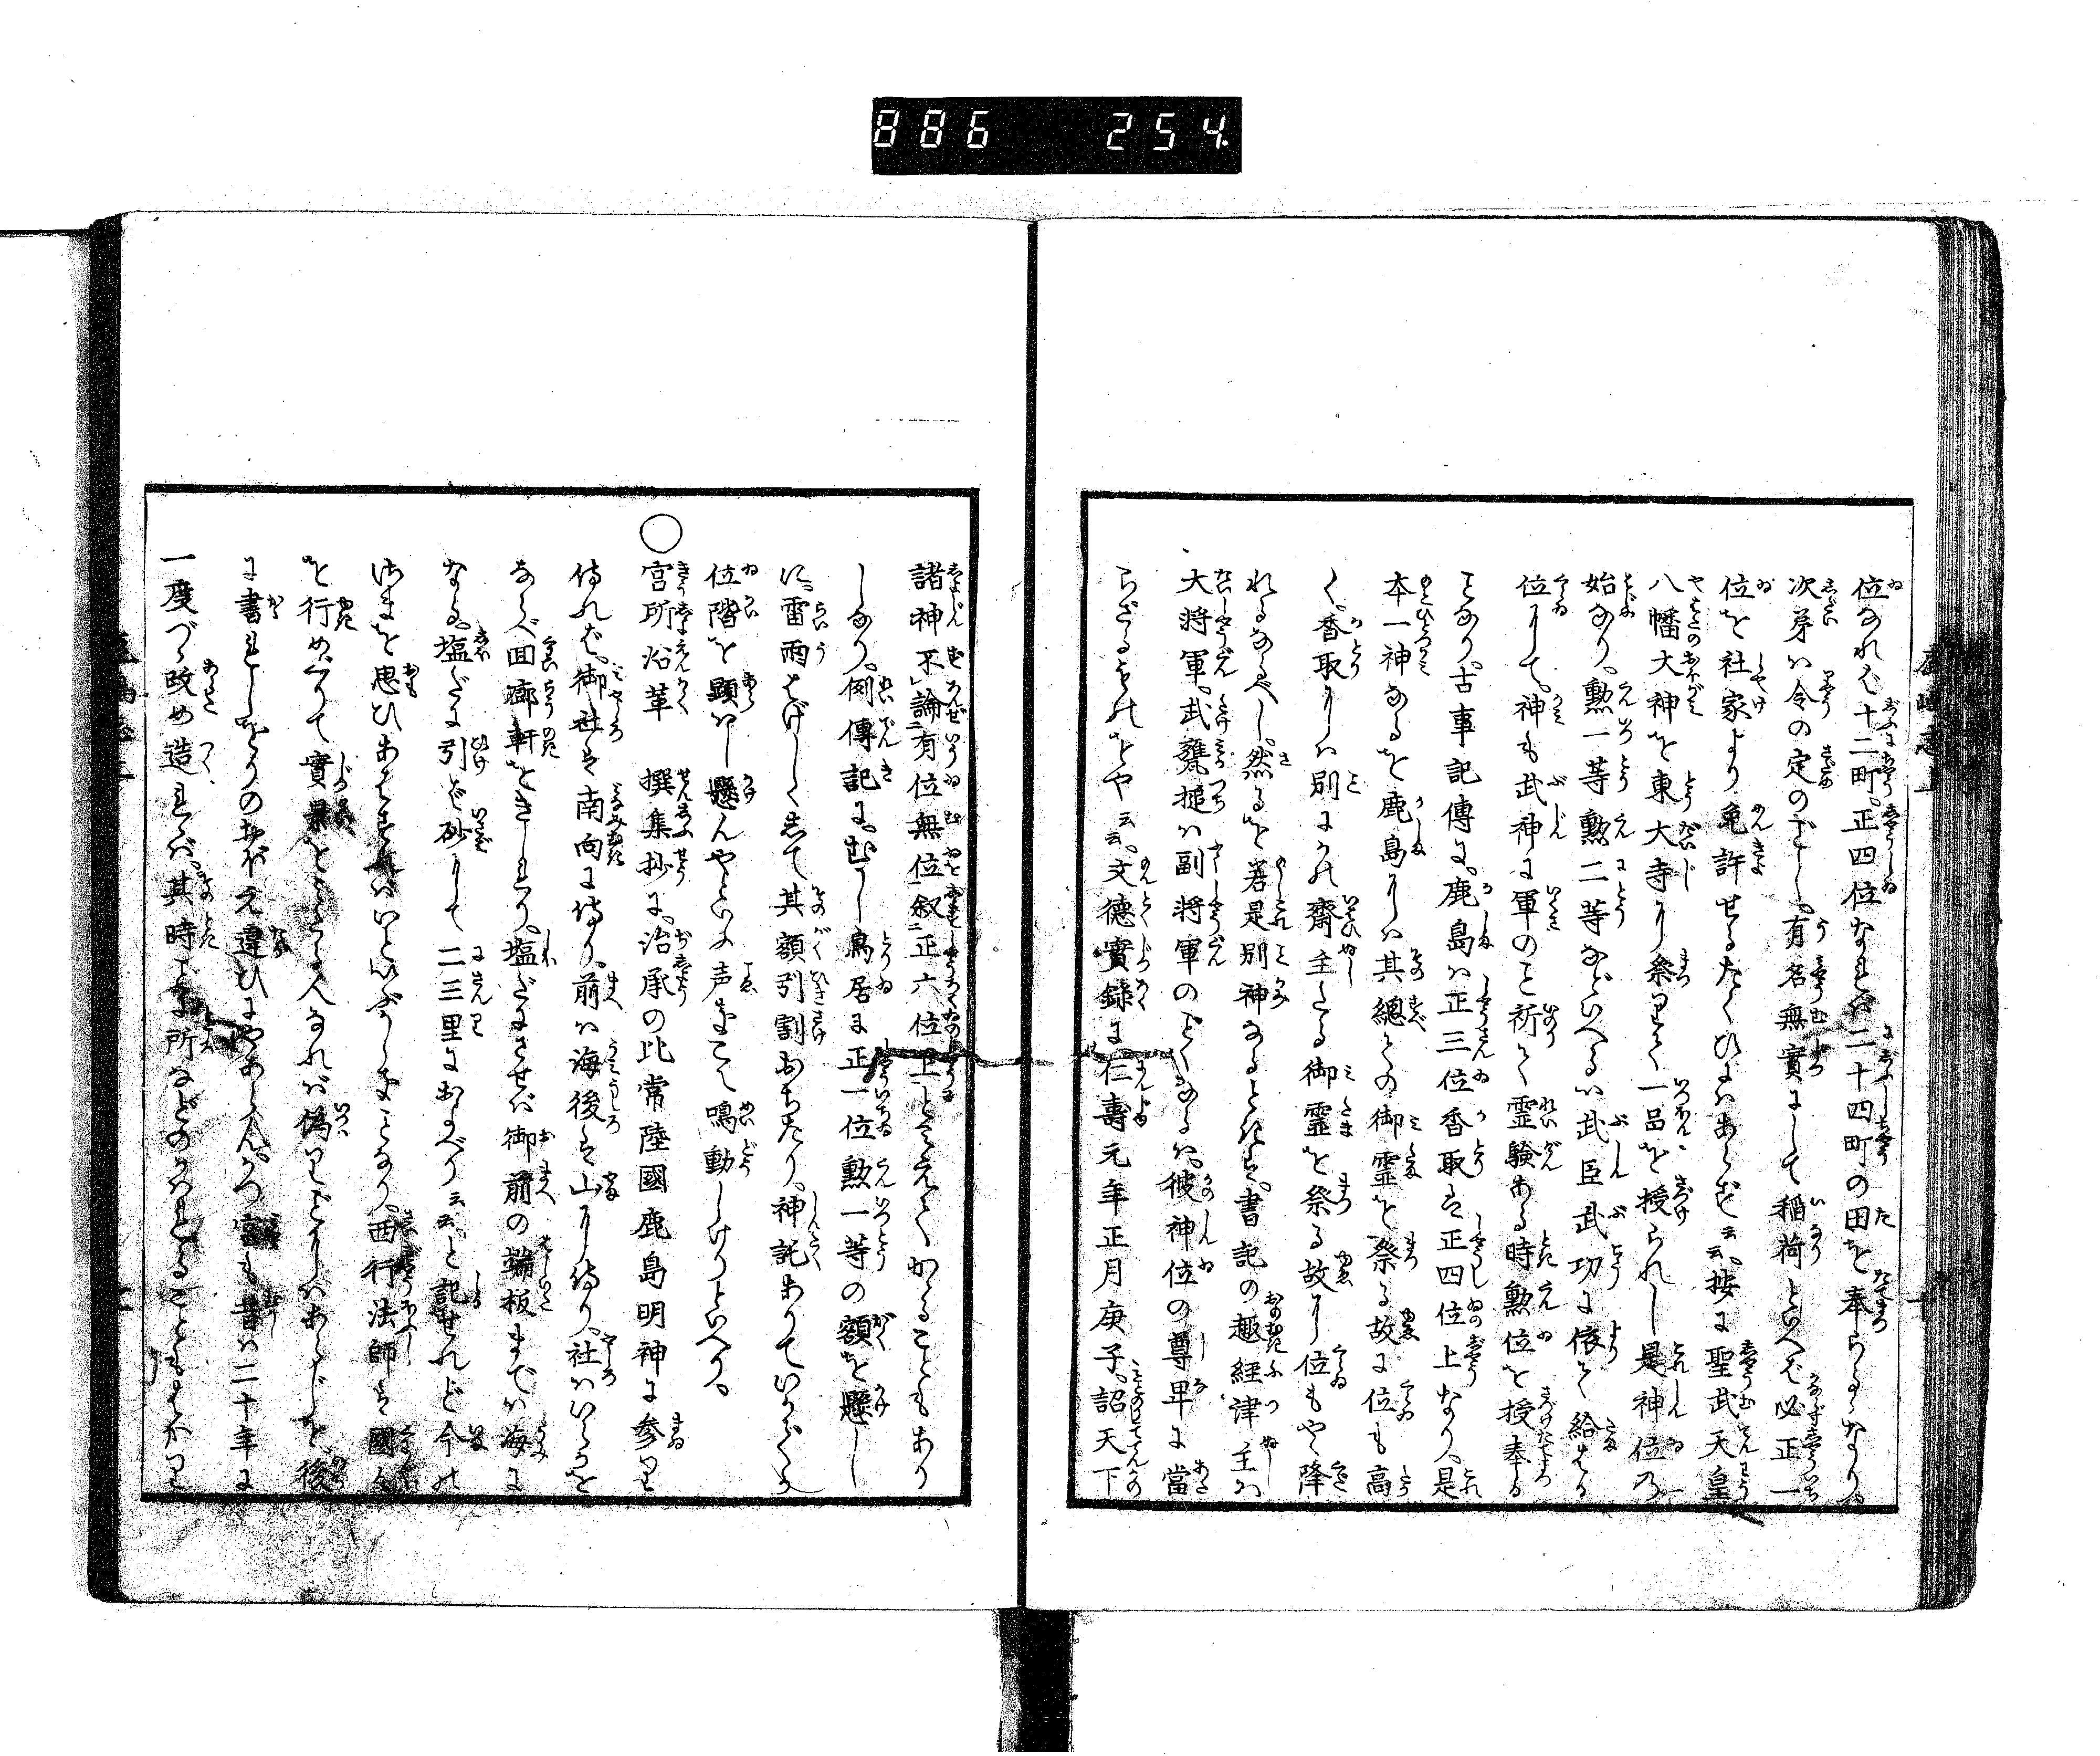 886 254
位なれば十二町。正四位なれば二十四町の田を奉らるゝなりや
次第は令の定のごとし。有名無實にして稲荷といへば必正一
位を社家より免許せるたぐひにはあらず云云。按に聖武天皇
八幡大神を東大寺に祭りて一品を授られし是神位の
始なり。勲一等勲二等などいへるは武臣武功に依て給はる
位にして。神も武神に軍のこと祈て霊験ある時勲位を授奉る
ことなり。古事記傳に。鹿島は正三位香取は正四位上なり。是
本一神なるを鹿島にしは其總ての御霊を祭る故に位も高
く。香取にしは別にかの齋主たる御霊を祭る故に位もやゝ降
れるなるべし。然るを若是別神なるときは。書記の趣経津主は
大將軍。武甕槌は副將軍のごとくなるは。彼神位の尊卑に當
らざるものをや云云。文德實録に仁壽元年正月庚子。詔天下
諸神不論有位無位叙正六位上と見えてかゝることもあり
しなり。例傳記に。むかし鳥居に正一位勲一等の額を懸し
に。雷雨はげしくして其額引割おちたり。神託ありていかでか
位階を顕はし懸んやといふ声きこえ鳴動しけりといへり。
○宮所沿革 撰集抄に。治承の比常陸國鹿島明神に参り
侍れば。御社は南向に侍り。前は海後は山にし侍り。社はいらかを
ならべ回廊軒をきしれり。塩だにさせば御前の端板までは海に
なる。塩だに引ば砂にして二三里におよべり云云と記せれど今の
さまを思ひあはするにはいといぶかしきことなり。西行法師は國々
を行めぐりて實景をとりし人なれば偽りごとにはあらじを。後
に書きしをりの筆が元違ひにやあらん。かつ宮も昔は二十年に
一度づゝ改め造られば。其時ごとに所などのかはれることもはかり